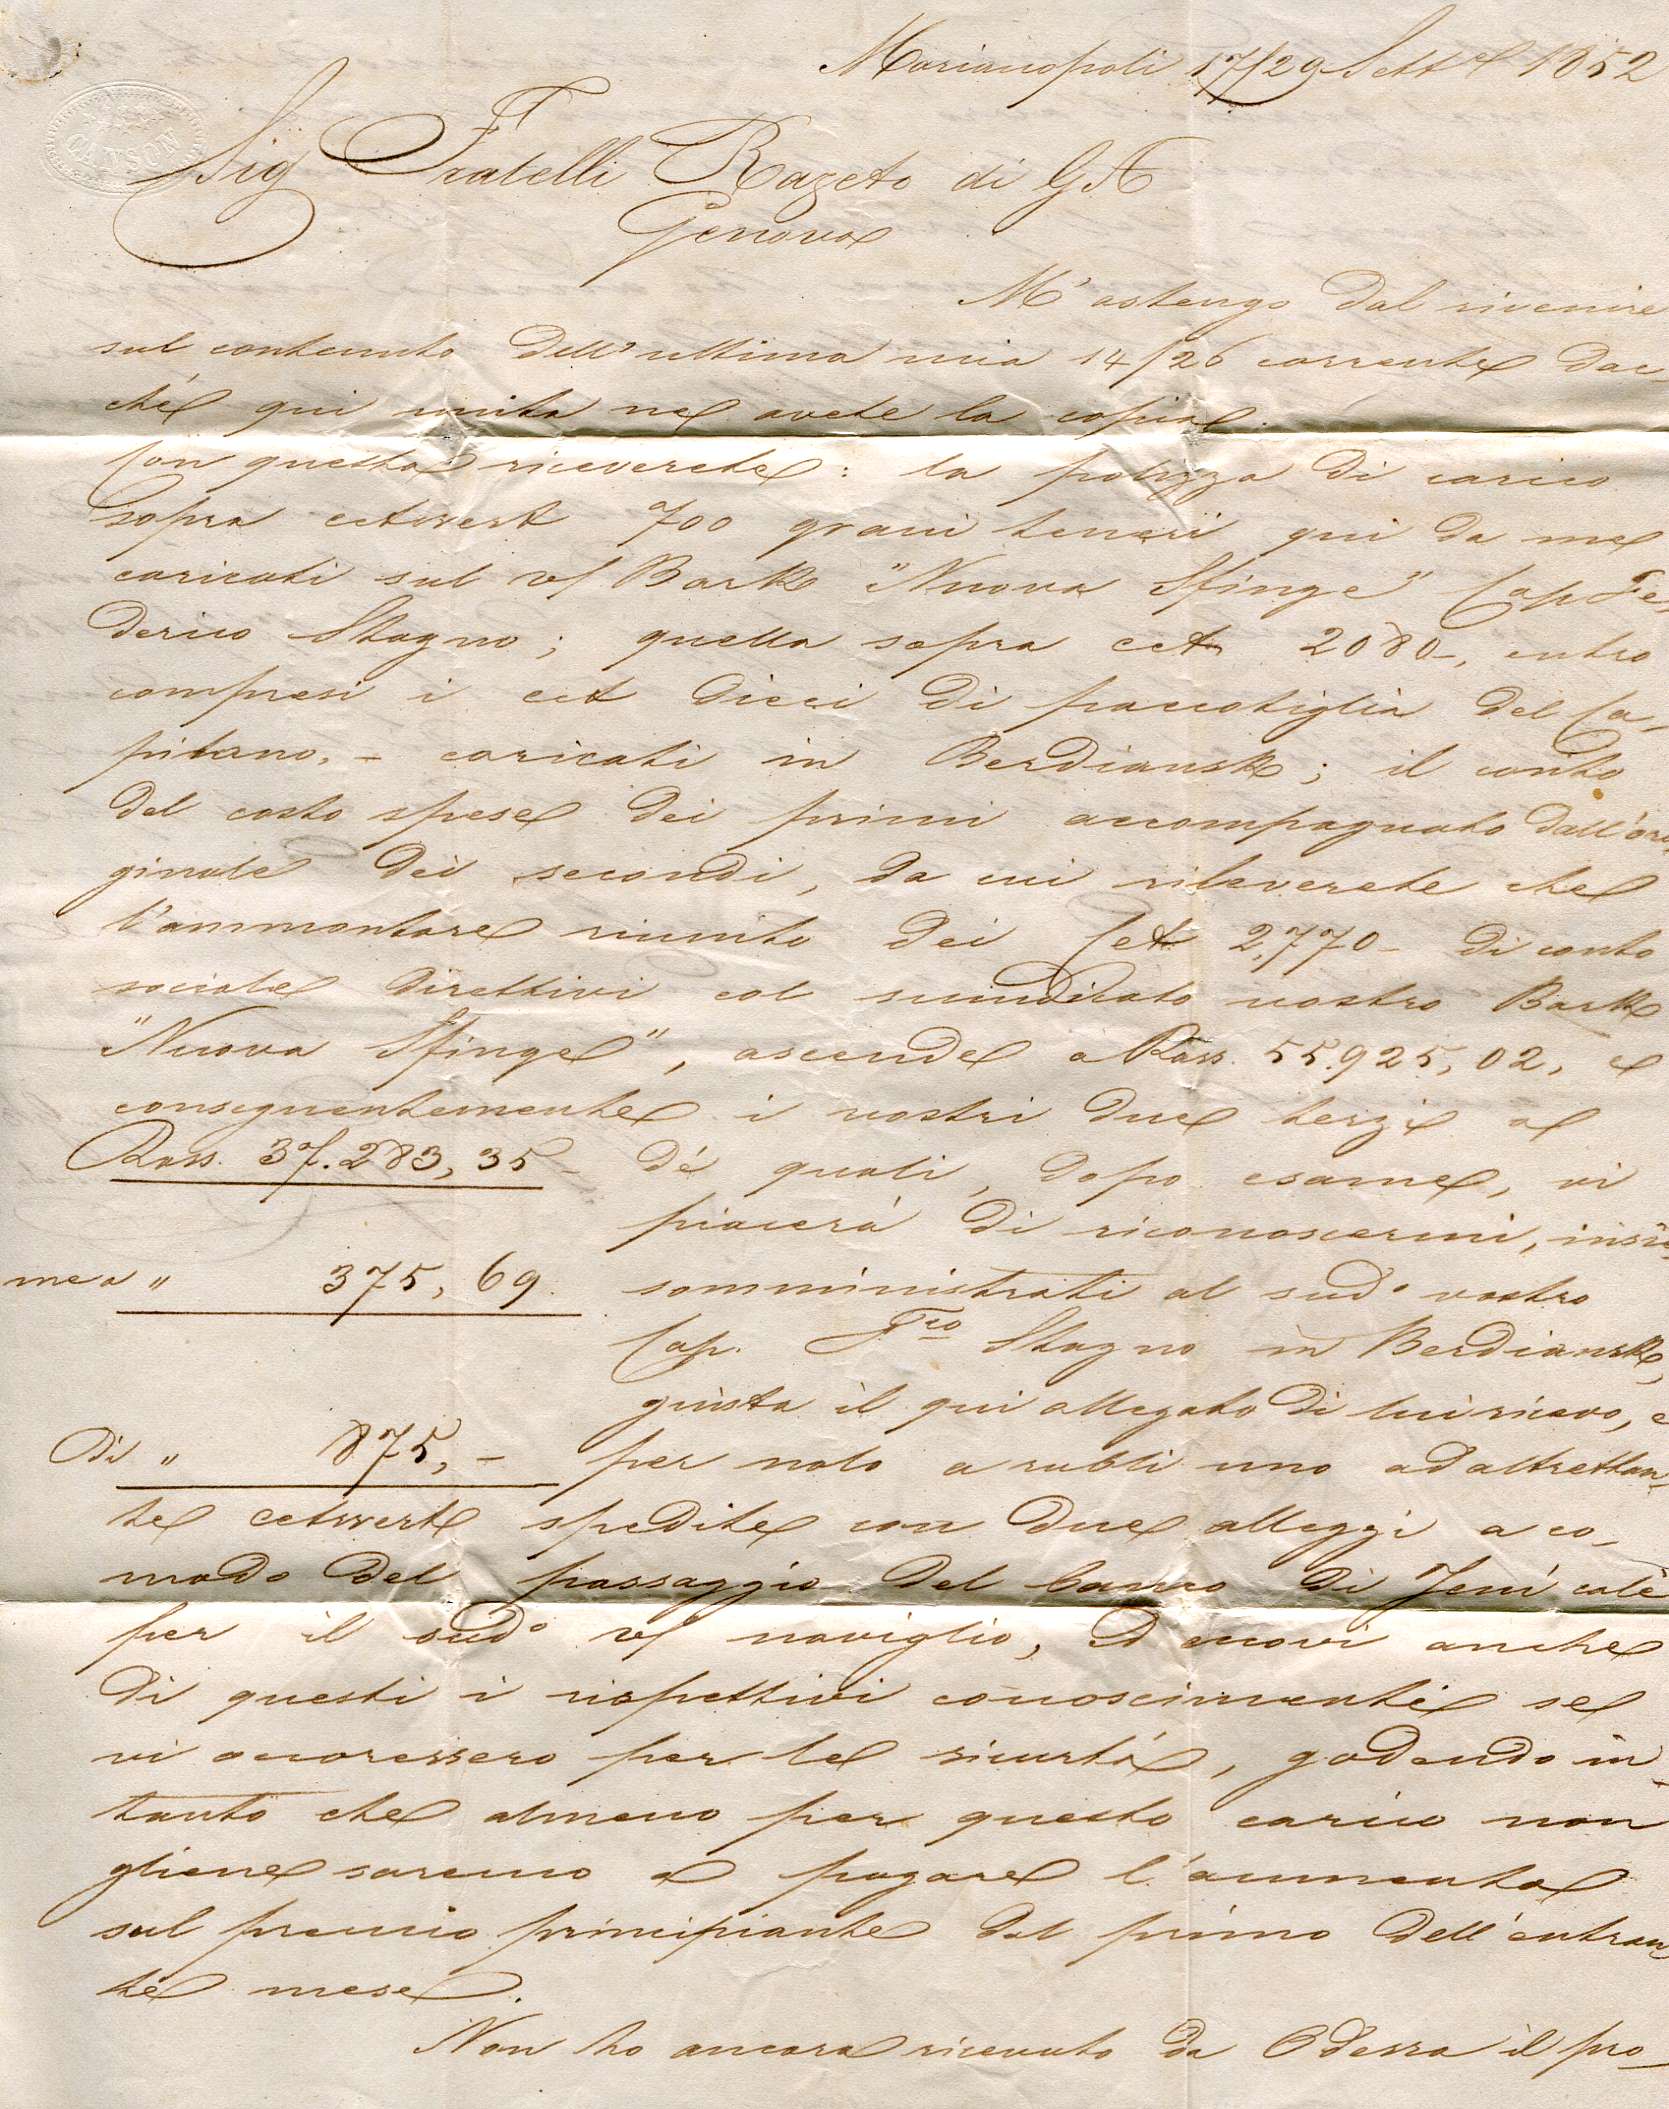 Marianopoli 17/29 Sett.e 1852
CANSON
Sig Fratelli Razeto di GA
Genova
M'astengo dal rivenire
sul contenuto dell'ultima mia 14/26 corrente dac-
chè qui unita ne avete la copia.
Con questa riceverete: la polizza di carico
sopra cetwert 700 grani teneri qui da me
caricati sul v/ Bark "Nuova Sfinge" Cap Fe-
derico Stagno; quella sopra cet 2080-, entro
compresi i cet dieci di paccotiglia del Ca-
pitano, - caricati in Berdiansk; il conto
del costo spese dei primi accompagnato dall'ori-
ginale dei secondi, da cui rileverete che
l'ammontare riunito dei Cet 2,770- di conto
sociale direttivi col suindicato vostro Bark
"Nuova Sfinge", ascende a Rass. 55.925,02, e
conseguentemente i vostri due terzi a
Rass. 37.283,35- de' quali, dopo esame, vi
piacerà di riconoscermi, insie-
me a " 375,69. somministrati al sud.o vostro
Cap. F.co Stagno in Berdiansk,
giusta il qui allegato di lui ricevo, e
di " 875,- per nolo a rubli uno ad altrettan-
te cetwert spedite con due alleggi a co-
modo del passaggio del banco di Jenicalè
per il sud.o v/ naviglio, ed eccovi anche
di questi i rispettivi conoscimenti se
vi occoressero per le sicurtà, godendo in-
tanto che almeno per questo carico non
gliene saremo a pagare l'aumento
sul premio principiante dal primo dell'entran-
te mese.
Non ho ancora ricevuto da Odessa il pro-